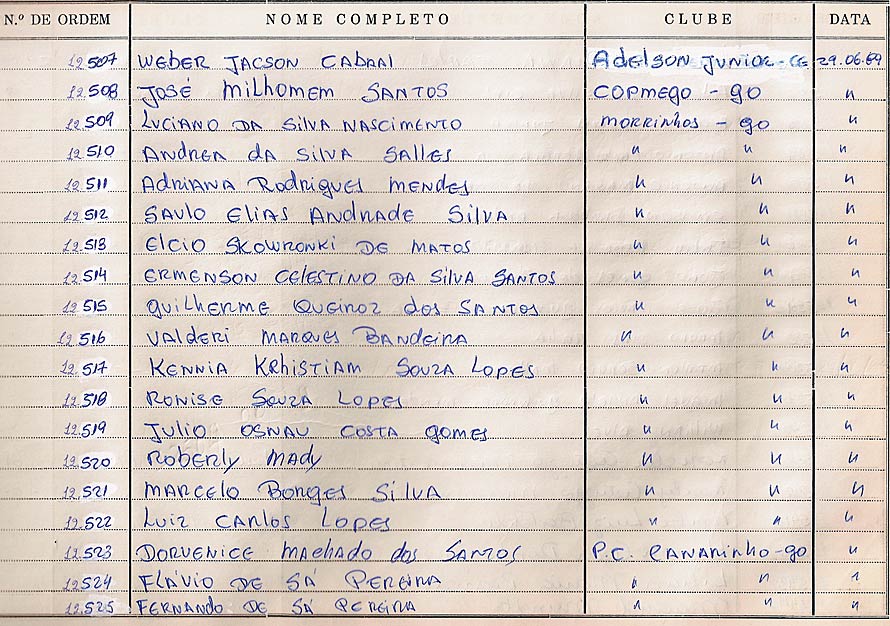 N.º DE ORDEM NOME COMPLETO CLUBE DATA
12507 WEBER JACSON CABRAL Adelson JUNIOR - CE 29.06.89
12508 JOSÉ MILHOMEM SANTOS COPMEGO - GO "
12509 LUCIANO DA SILVA NASCIMENTO MORRINHOS - GO "
12510 ANDREA da SILVA SALLES " " "
12511 ADRIANA RODRIGUES MENDES " " "
12512 SAULO ELIAS ANDRADE SILVA " " "
12513 ELCIO SKOWRONKI DE MATOS " " "
12514 ERMENSON CELESTINO DA SILVA SANTOS " " "
12515 GUILHERME QUEIROZ dos SANTOS " " "
12516 VALDERI MARQUES BANDEIRA " " "
12517 KENNIA KRHISTIAM SOUZA LOPES " " "
12518 RONISE SOUZA LOPES " " "
12519 JULIO OSNAU COSTA GOMES " " "
12520 ROBERLY MADY " " "
12521 MARCELO BORGES SILVA " " "
12522 LUIZ CARLOS LOPES " " "
12523 DORVENICE MACHADO dos SANTOS P.C. CANARINHO - GO "
12524 FLÁVIO DE SÁ PEREIRA " " "
12525 FERNANDO DE SÁ PEREIRA " " "